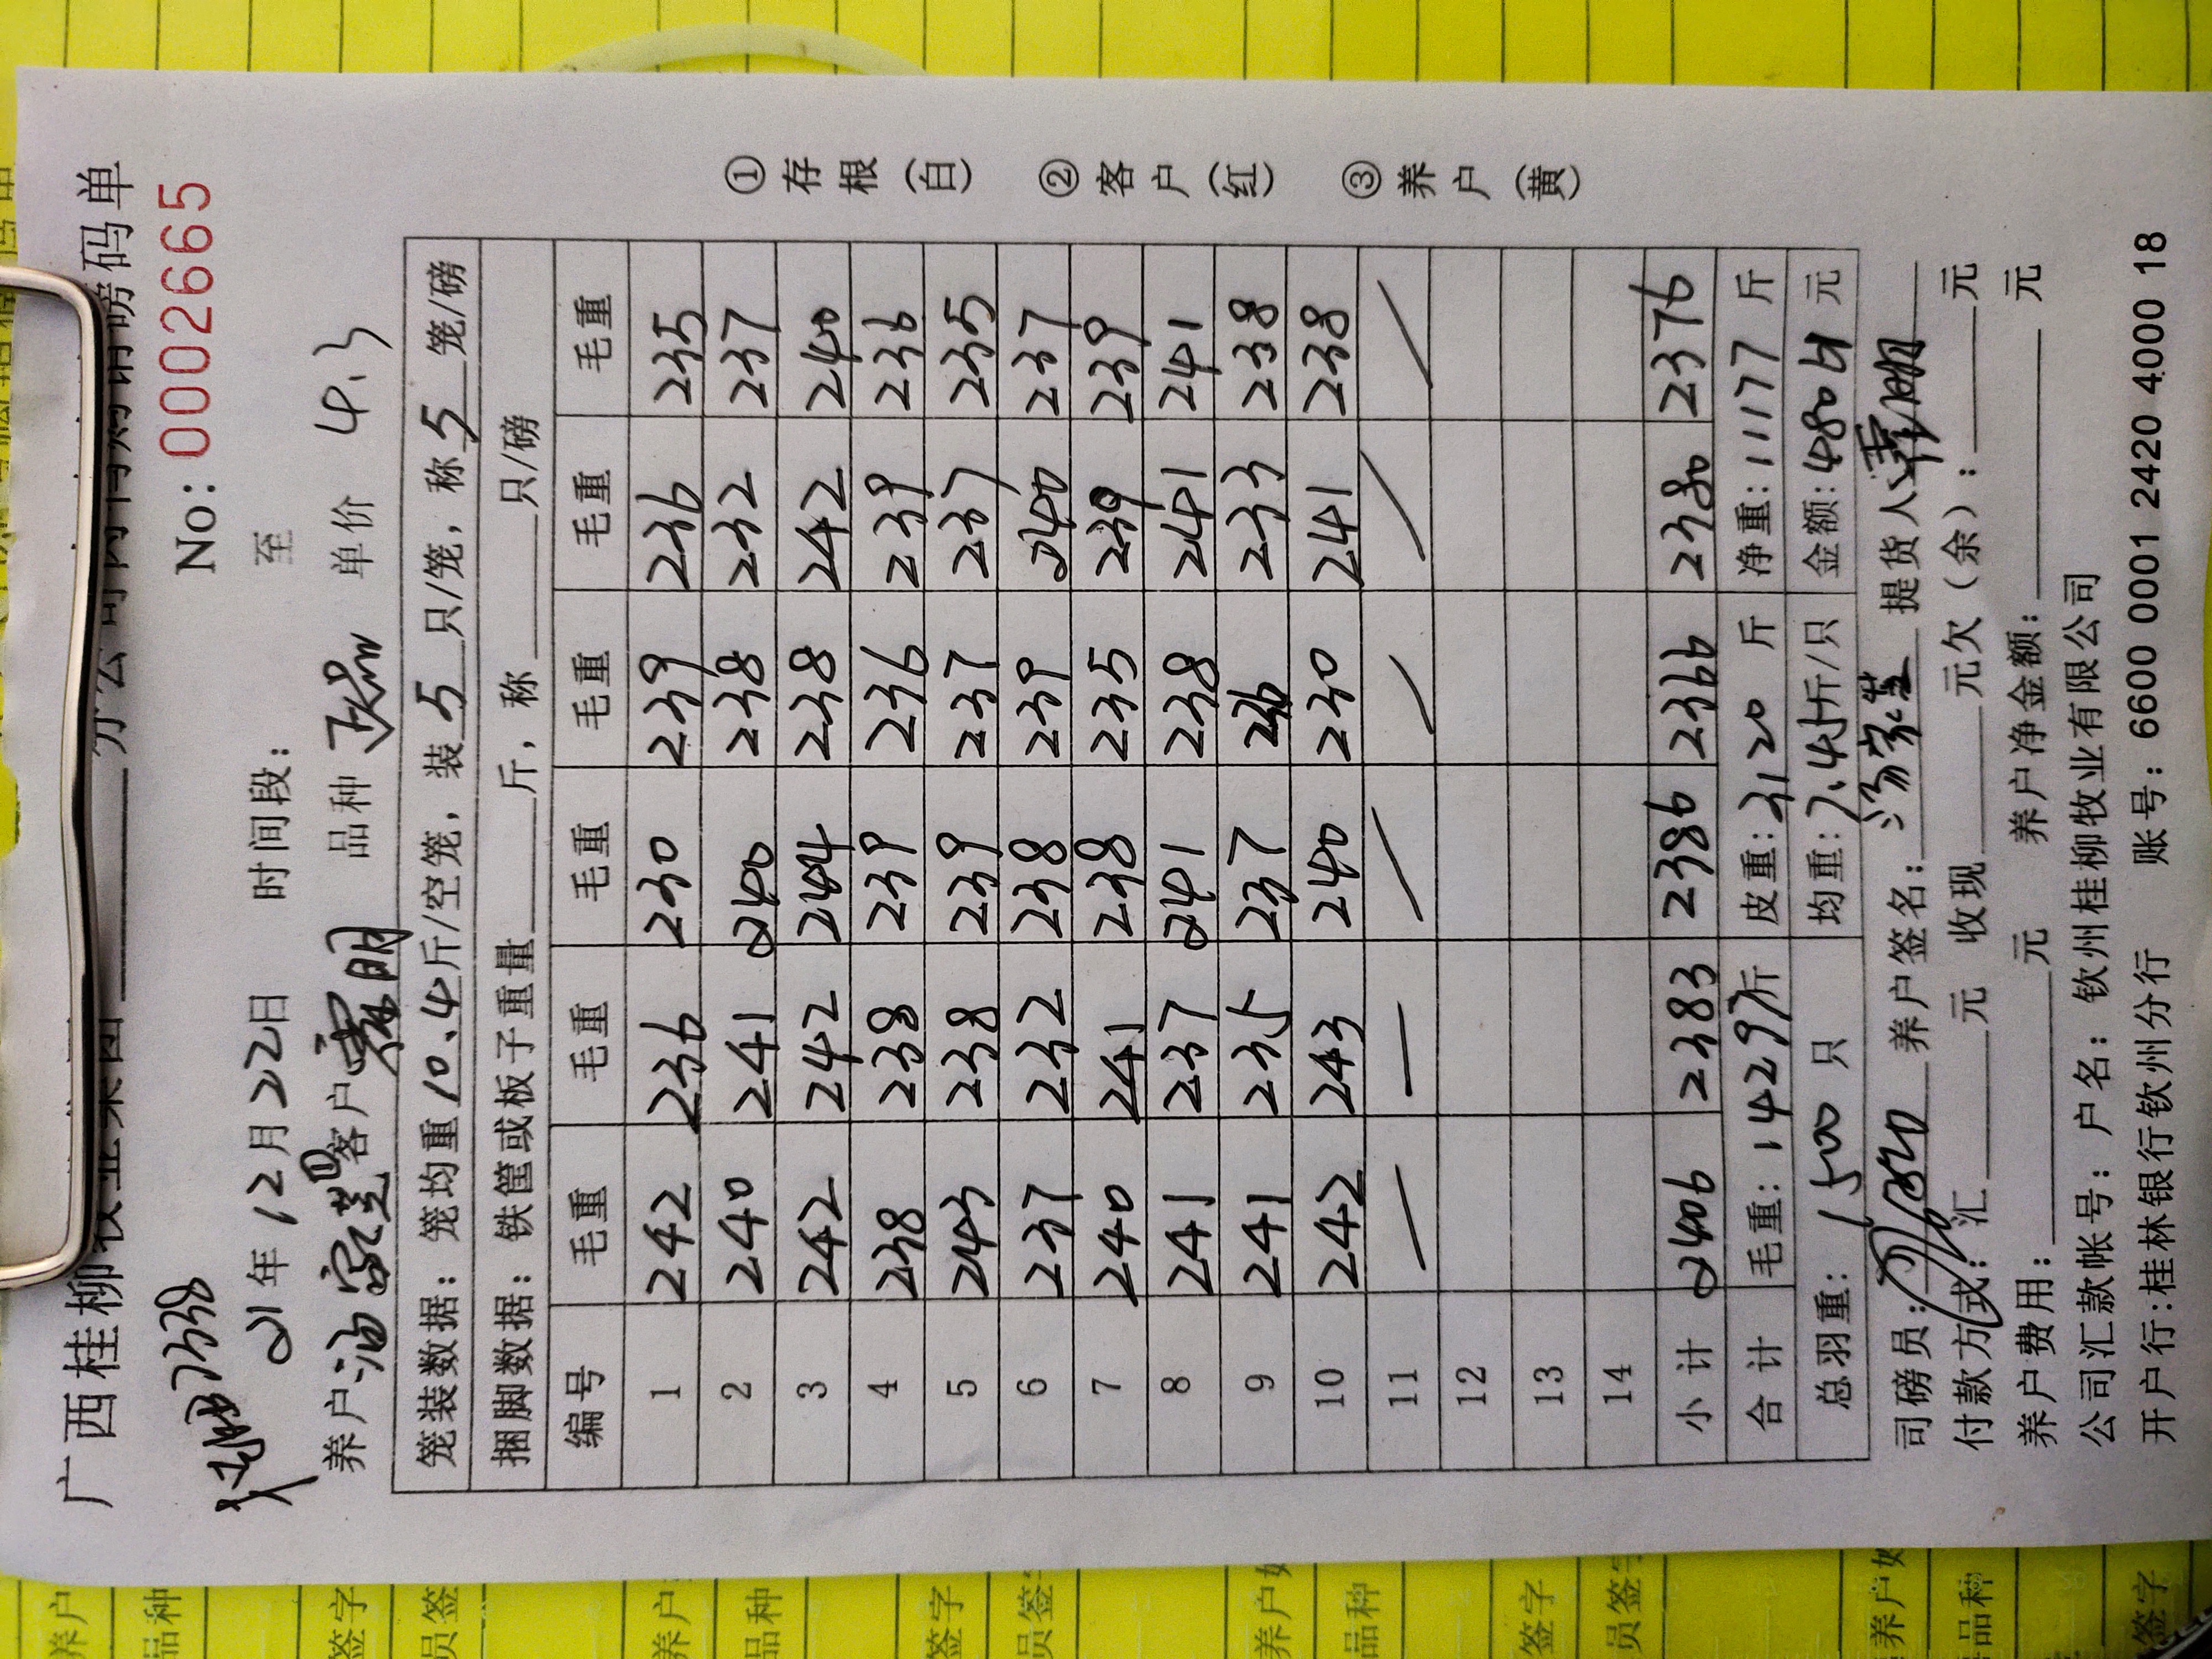 广西桂柳牧业集团 分公司肉鸭销售磅码单
No: 0002665
21年12月22日 时间段: 至
养户 客户 品种 单价 4.3
笼装数据: 笼均重10.4斤/空笼, 装5只/笼, 称5笼/磅
捆脚数据: 铁筐或板子重量 斤, 称 只/磅
编号 毛重 毛重 毛重 毛重 毛重 毛重
1 242 236 230 239 236 235
2 240 241 240 238 232 237
3 242 242 244 238 242 240
4 238 238 239 236 239 236
5 243 238 239 237 237 235
6 237 232 238 239 240 237
7 240 241 238 235 239 239
8 241 237 241 238 241 241
9 241 235 237 236 233 238
10 242 243 240 230 241 238
11 — — / / / /
12
13
14
小计 2406 2383 2386 2366 2380 2376
合计 毛重: 14297斤 皮重: 3120 斤 净重: 11177 斤
总羽重: 1500 只 均重: 7.45斤/只 金额: 48061 元
司磅员: 养户签名: 提货人
付款方式: 汇 元 收现 元欠(余): 元
养户费用: 元 养户净金额: 元
公司汇款帐号: 户名: 钦州桂柳牧业有限公司
开户行:桂林银行钦州分行 账号: 6600 0001 2420 4000 18
①存根(白) ②客户(红) ③养户(黄)
养户
品种
签字
员签
养户
品种
签字
员签
养户
品种
签字
员签
养户
品种
签字